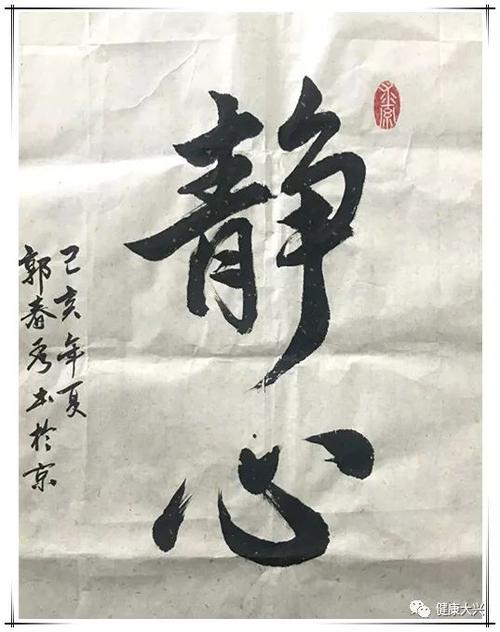 静心
己亥年夏
郭春秀书於京
健康大兴